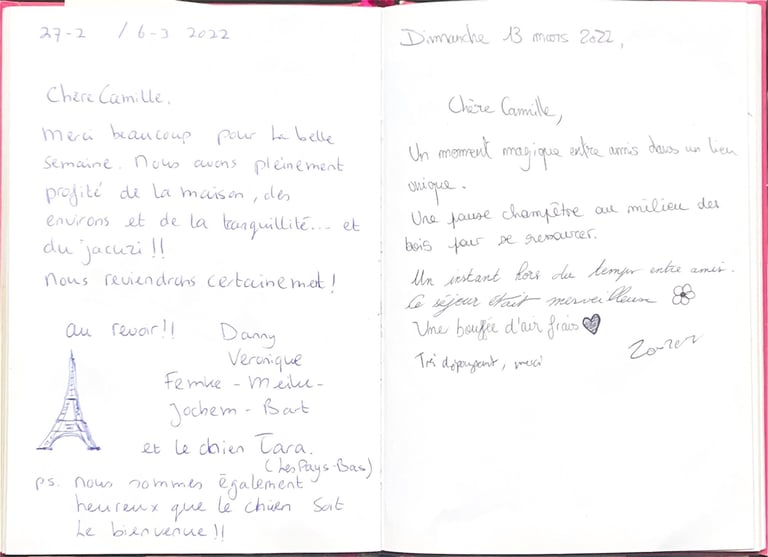 27-2 / 6-3 2022
Chère Camille,
Merci beaucoup pour la belle
semaine. Nous avons pleinement
profité de la maison, des
environs et de la tranquillité... et
du jacuzi !!
Nous reviendrons certainemet !
au revoir !!
Danny
Veronique
Femke - Meike -
Jochem - Bart
et le chien Tara.
(Les Pays-Bas)
ps. nous sommes également
heureux que le chien soit
le bienvenue !!
Dimanche 13 mars 2022,
Chère Camille,
Un moment magique entre amis dans un lieu
unique.
Une pause champêtre au milieu des
bois pour se ressourcer.
Un instant hors du temps entre amis.
Ce séjour était merveilleux
Une bouffée d'air frais
Tri dépaysant, merci